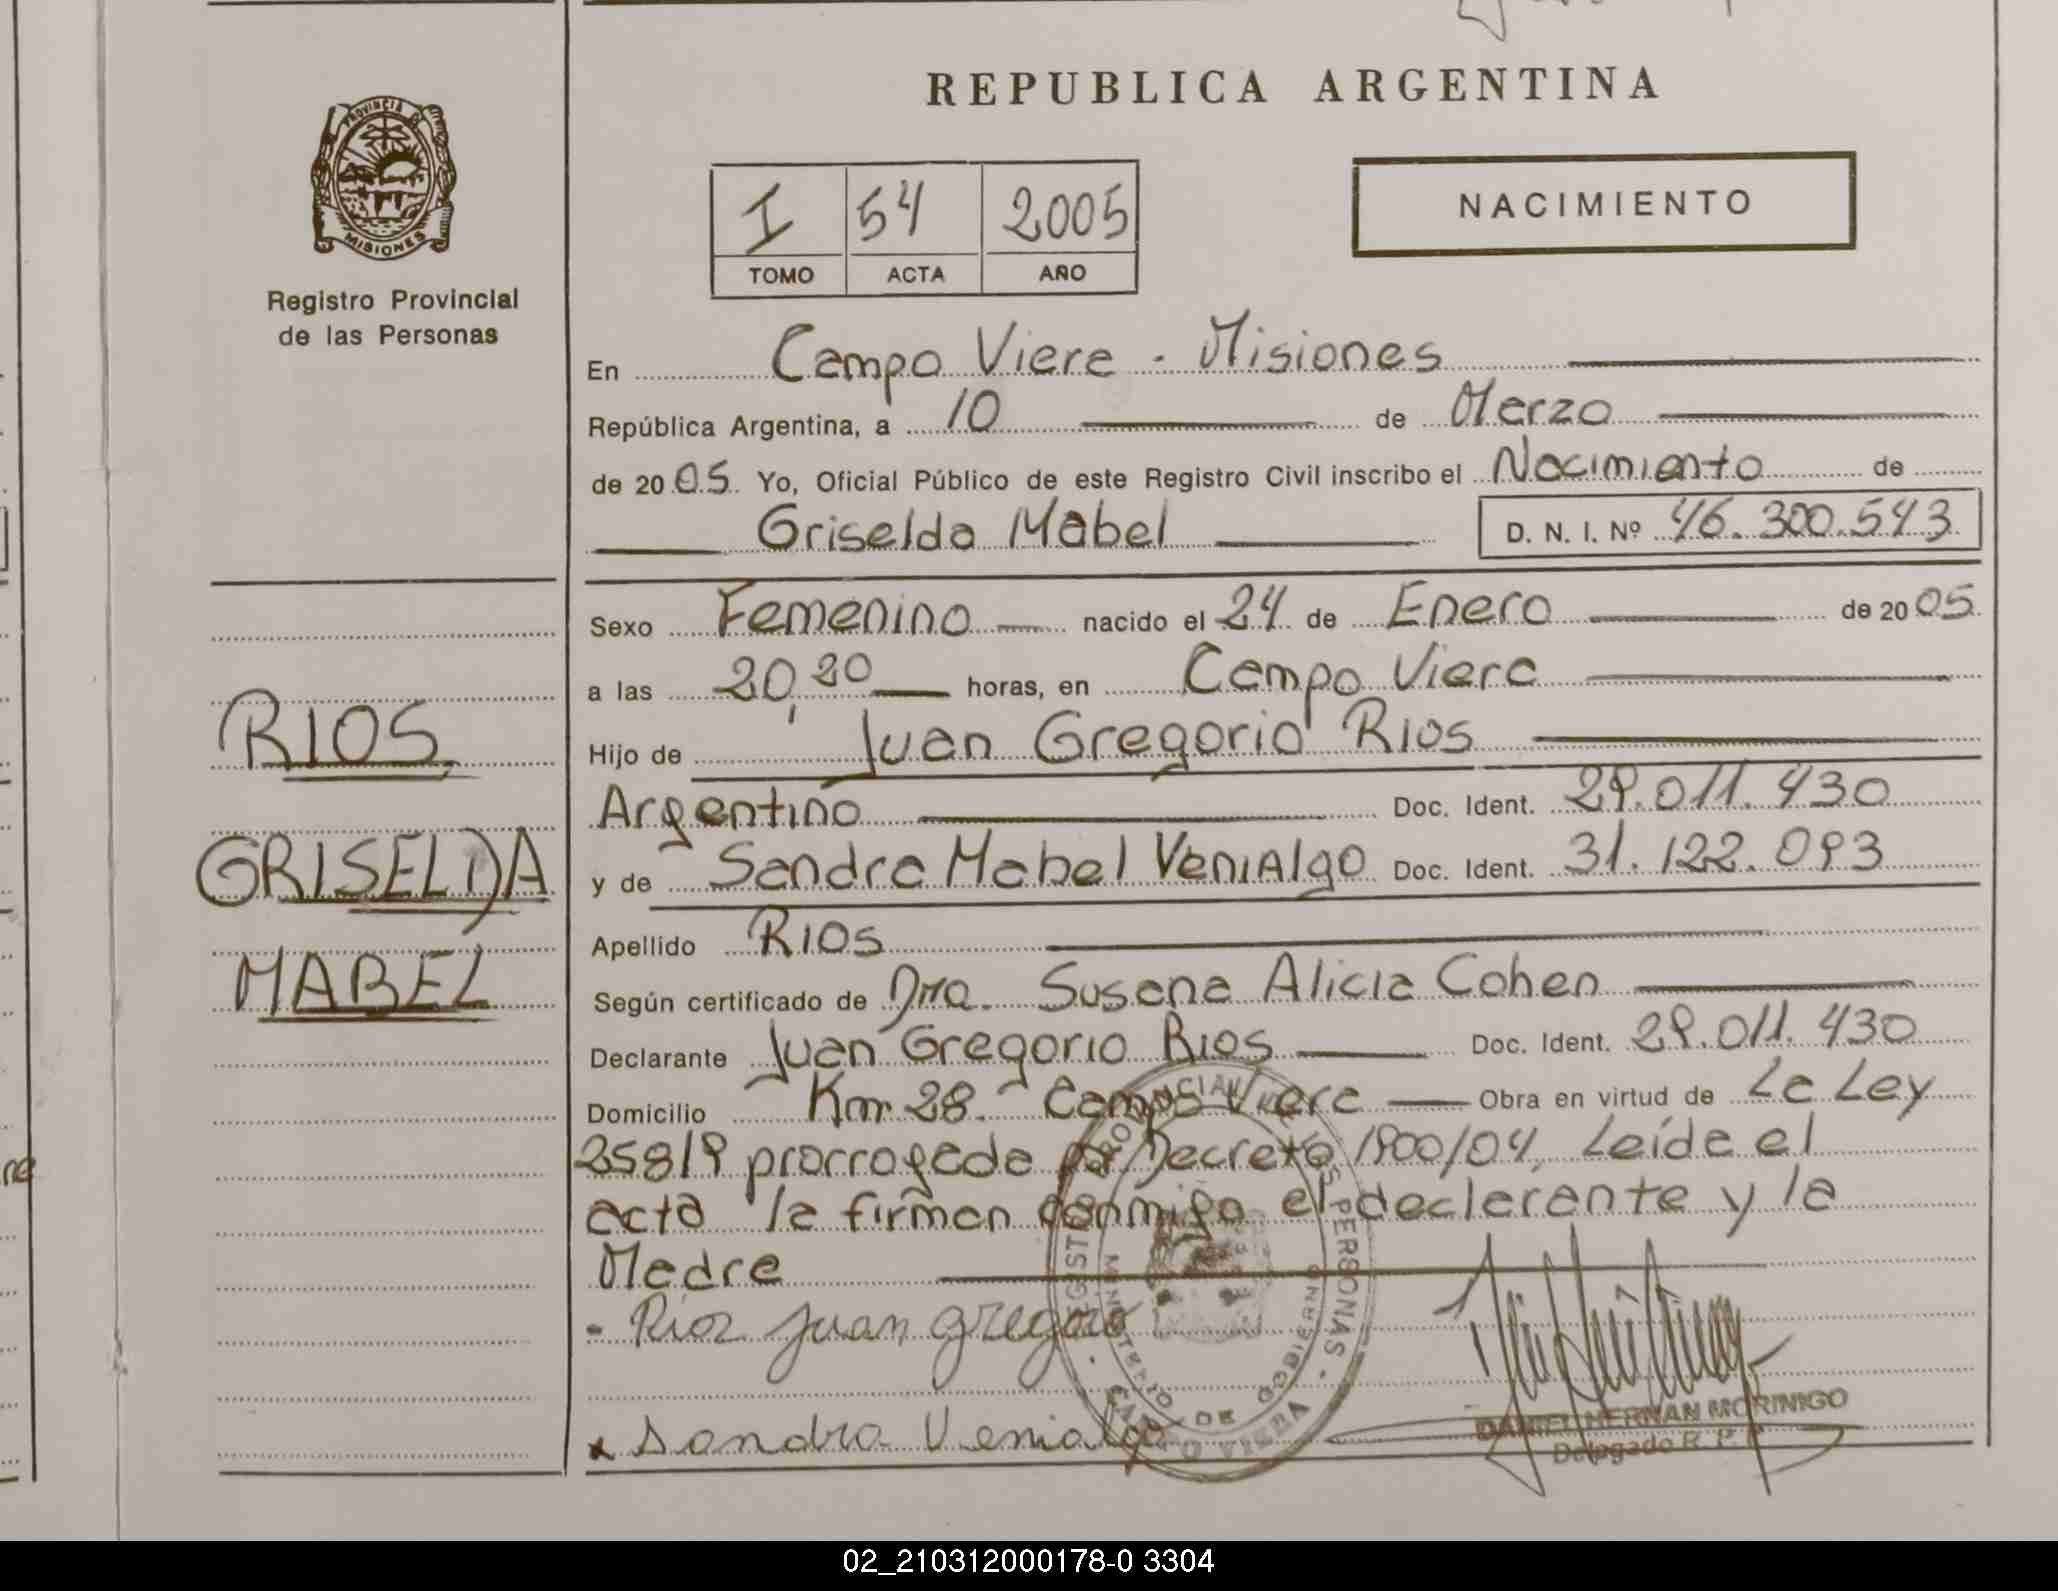 REPUBLICA ARGENTINA
PROVINCIA DE
MISIONES
Registro Provincial
de las Personas
I 54 2005
TOMO ACTA AÑO
NACIMIENTO
En Campo Viera - Misiones
República Argentina, a 10 de Marzo
de 2005 Yo, Oficial Público de este Registro Civil inscribo el Nacimiento de
Griselda Mabel D. N. I. Nº 46.300.543
Sexo Femenino nacido el 24 de Enero de 2005
a las 20,20 horas, en Campo Viera
Hijo de Juan Gregorio Rios
Argentino Doc. Ident. 29.011.430
y de Sandra Mabel Venialgo Doc. Ident. 31.122.093
Apellido Rios
Según certificado de Dra. Susana Alicia Cohen
Declarante Juan Gregorio Rios Doc. Ident. 29.011.430
Domicilio Km 28. Campo Viera Obra en virtud de La Ley
25819 prorrogada por Decreto 1900/04, Leída el
acta la firman conmigo el declarante y la
Madre
- Rios Juan gregorio
x Sandra Venialgo
RIOS,
GRISELDA
MABEL
PERSONAS
MINISTERIO DE GOBIERNO
CAMPO VIERA
DANIEL HERNAN MORINIGO
Delegado R. P.
02_210312000178-0 3304